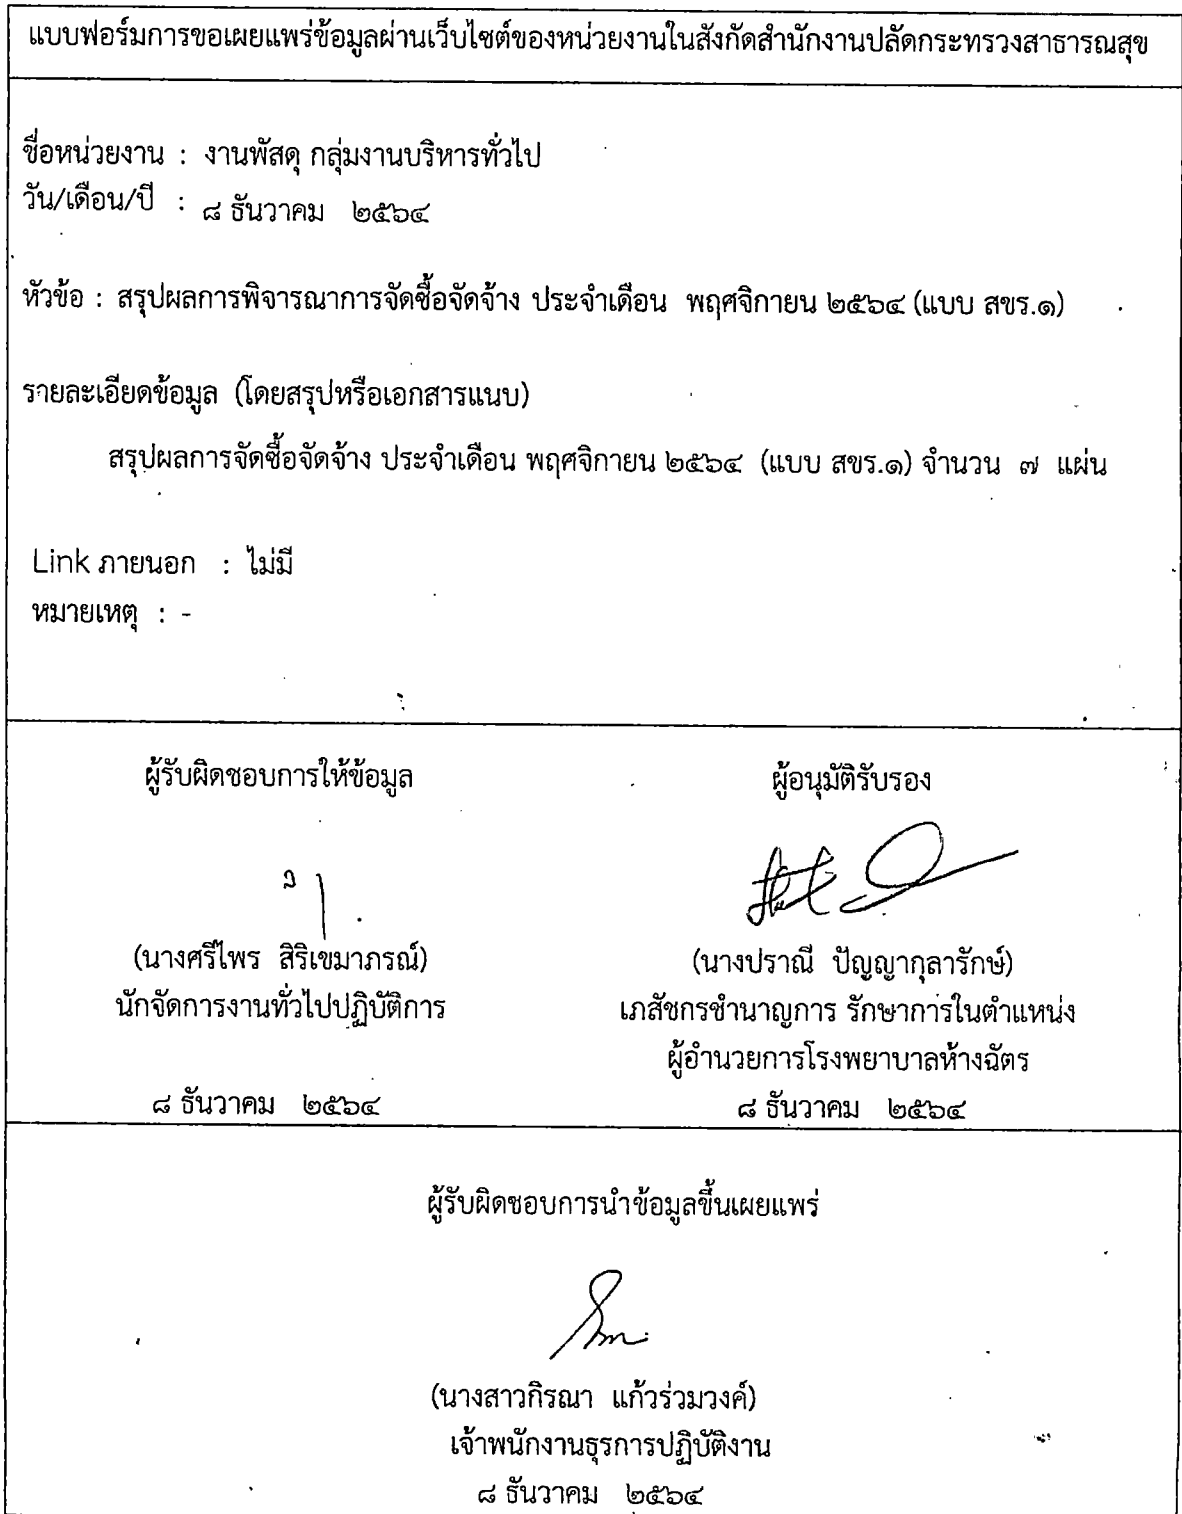 แบบฟอร์มการขอเผยแพร่ข้อมูลผ่านเว็บไซต์ของหน่วยงานในสังกัดสำนักงานปลัดกระทรวงสาธารณสุข
ชื่อหน่วยงาน : งานพัสดุ กลุ่มงานบริหารทั่วไป
วัน/เดือน/ปี : ๘ ธันวาคม ๒๕๖๔
หัวข้อ : สรุปผลการพิจารณาการจัดซื้อจัดจ้าง ประจำเดือน พฤศจิกายน ๒๕๖๔ (แบบ สขร.๑)
รายละเอียดข้อมูล (โดยสรุปหรือเอกสารแนบ)
สรุปผลการจัดซื้อจัดจ้าง ประจำเดือน พฤศจิกายน ๒๕๖๔ (แบบ สขร.๑) จำนวน ๗ แผ่น
Link ภายนอก : ไม่มี
หมายเหตุ : -
ผู้รับผิดชอบการให้ข้อมูล
(นางศรีไพร สิริเขมาภรณ์)
นักจัดการงานทั่วไปปฏิบัติการ
๘ ธันวาคม ๒๕๖๔
ผู้อนุมัติรับรอง
(นางปราณี ปัญญากุลารักษ์)
เภสัชกรชำนาญการ รักษาการในตำแหน่ง
ผู้อำนวยการโรงพยาบาลห้างฉัตร
๘ ธันวาคม ๒๕๖๔
ผู้รับผิดชอบการนำข้อมูลขึ้นเผยแพร่
(นางสาวกิรณา แก้วร่วมวงค์)
เจ้าพนักงานธุรการปฏิบัติงาน
๘ ธันวาคม ๒๕๖๔